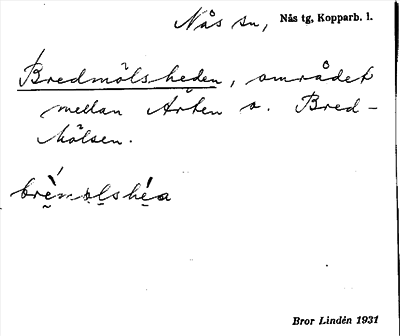 Nås sn, Nås tg, Kopparb. l.
Bredmölsheden, området
mellan Arten o. Bred-
mölsen.
brèmo̤lshéa
Bror Lindén 1931